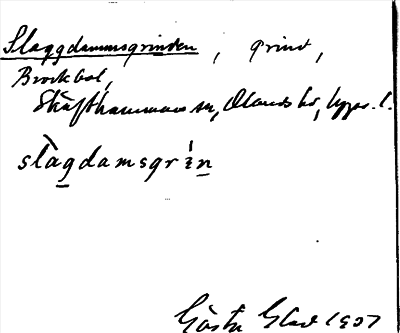 Slaggdammsgrinden, grind,
Brockbol,
Skäfthammars sn, Olands hd, Upps. l.
slàgdamsgrín
Gösta Glad 1907